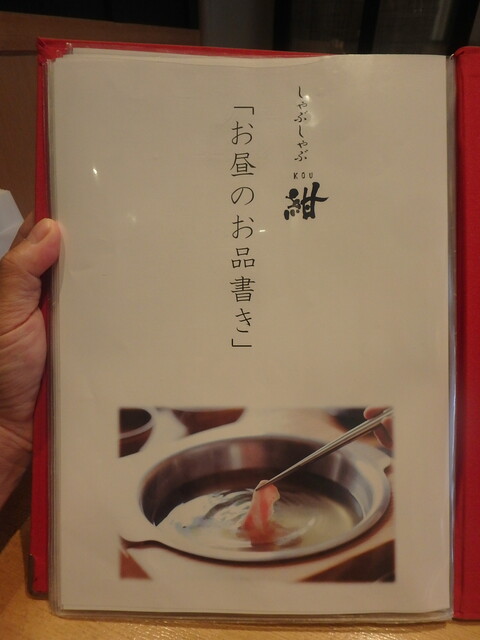 しゃぶしゃぶ
KOU
紺
「お昼のお品書き」